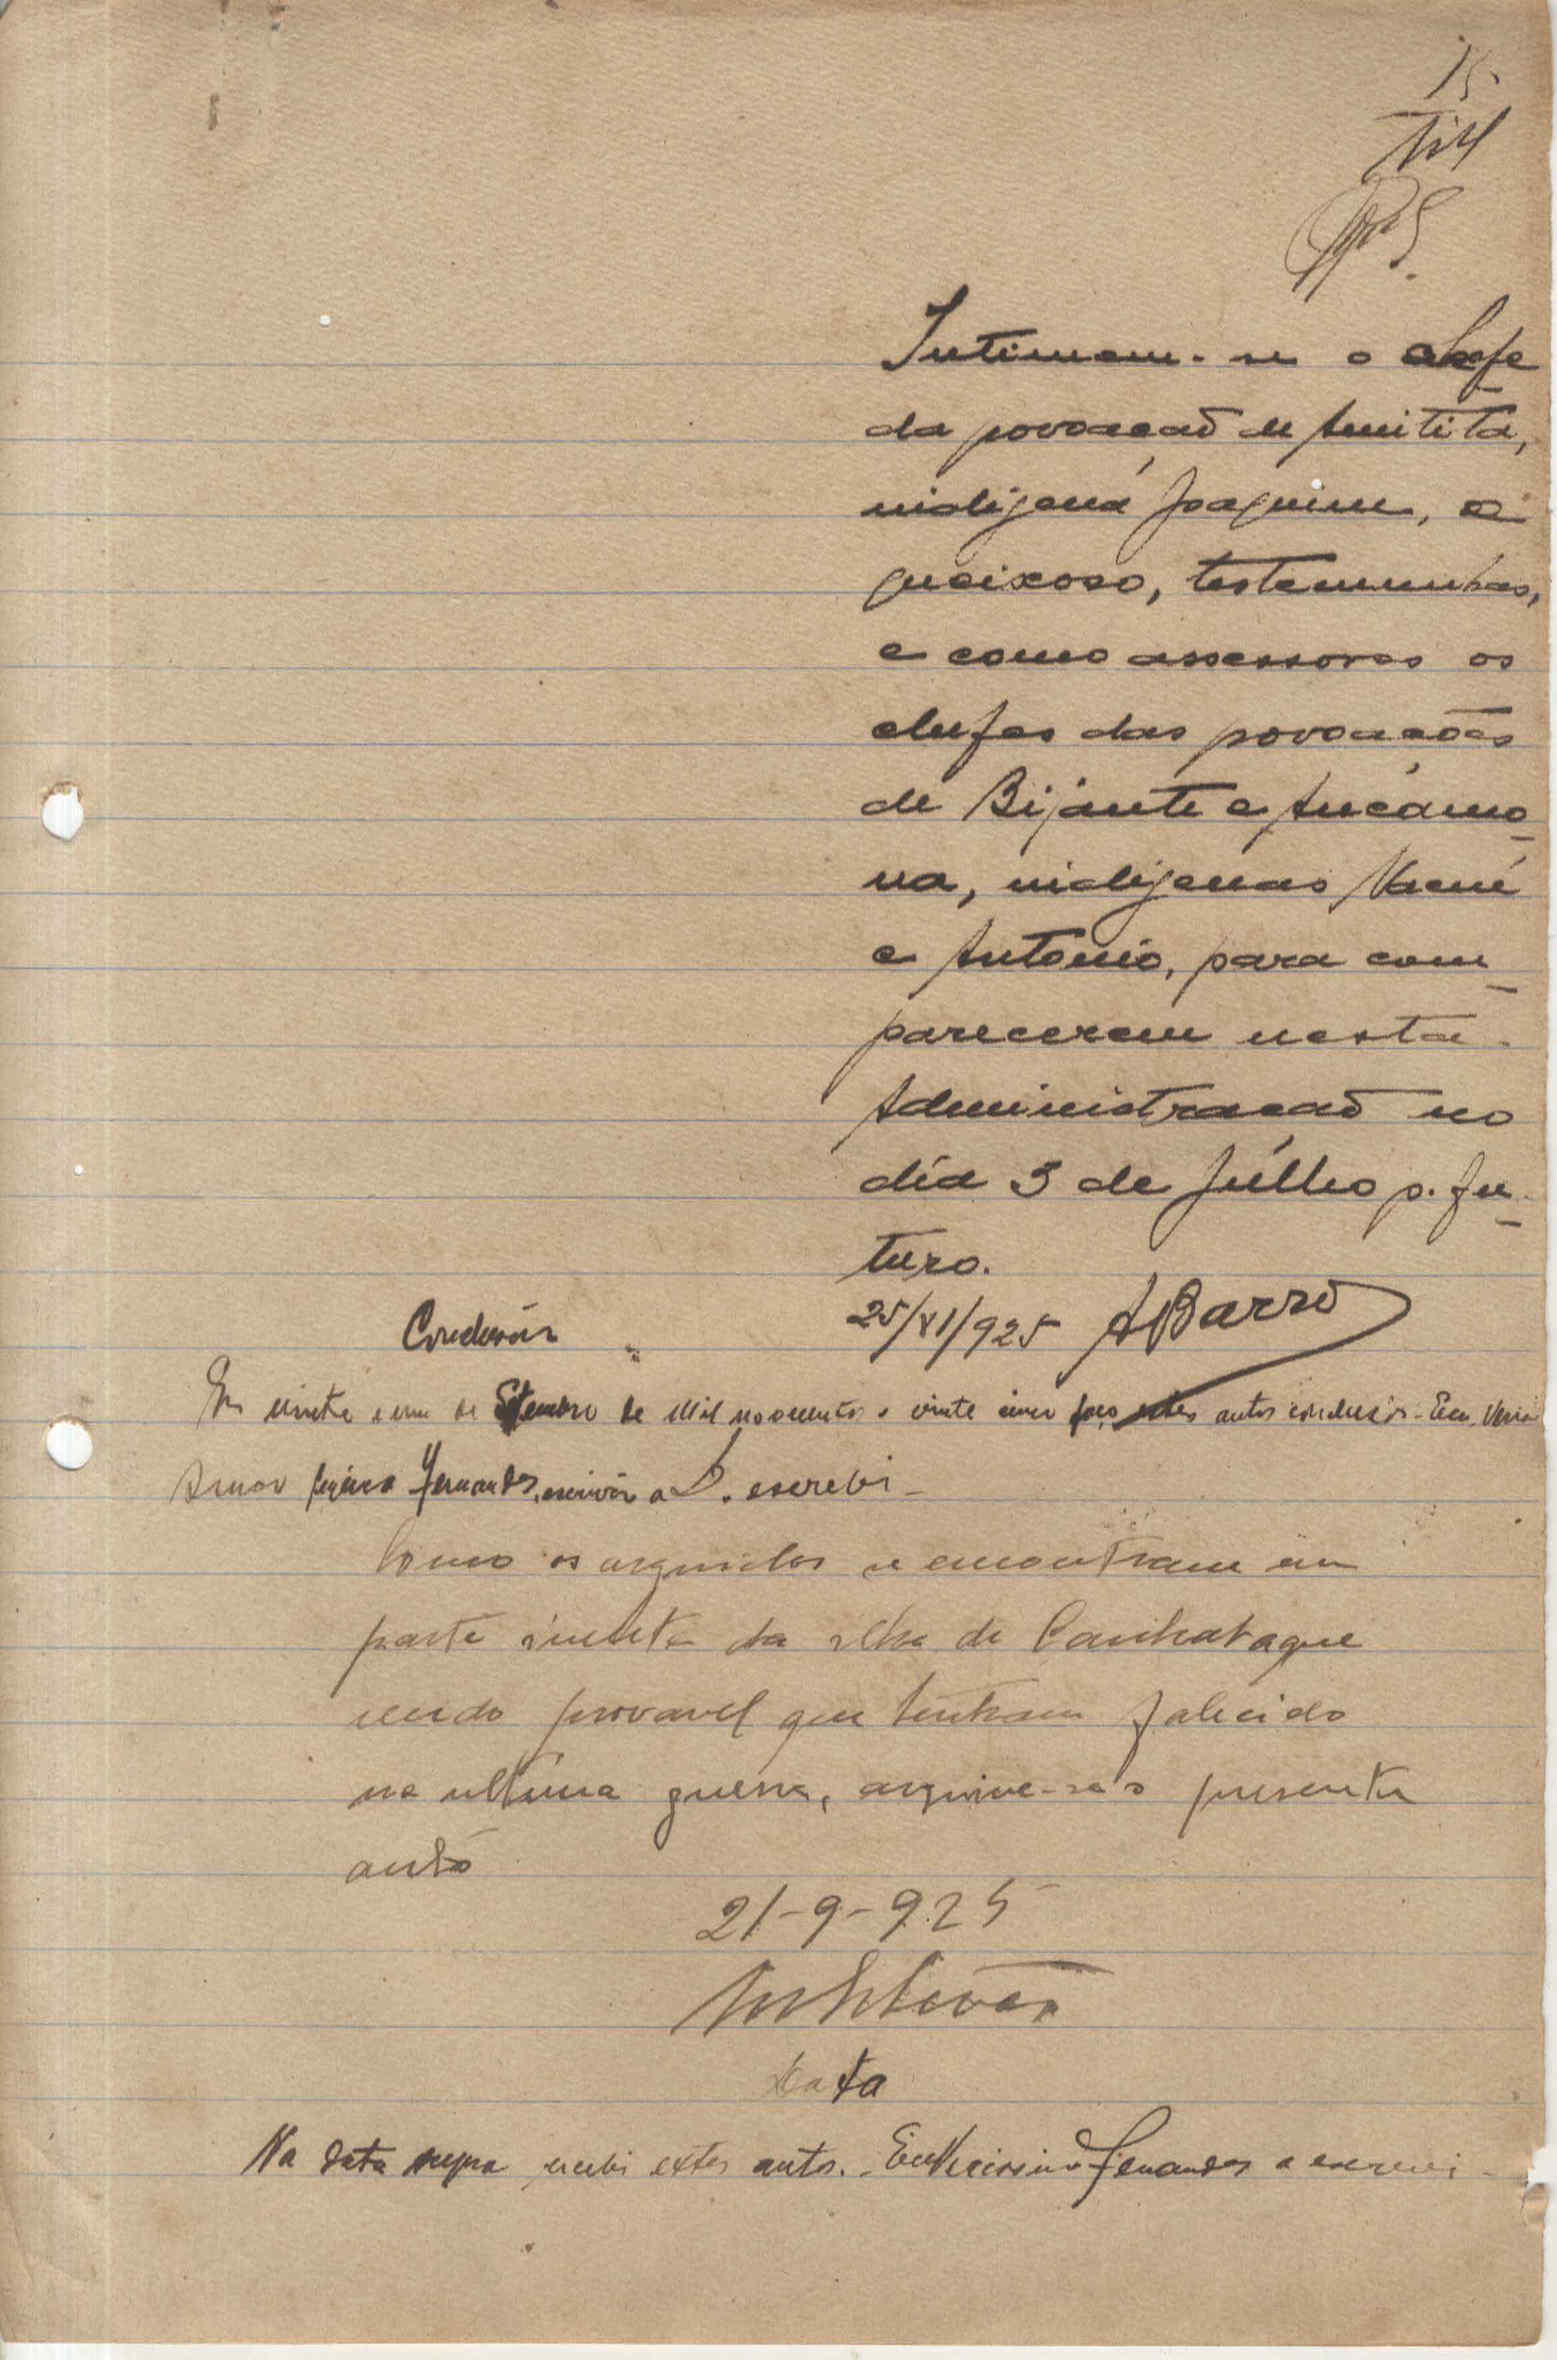 15
Intimem-se o chefe
da povoação de Ametita,
indigena Joaquim, o
queixoso, testemunhas,
e como assessores os
chefes das povoações
de Bijante e Ancamo-
na, indigenas Nacué
e António, para com-
parecerem nesta
Administração no
dia 3 de Júlho p. fu-
turo.
25/VI/925 ABarro
Conclusão
Em vinte e um de Setembro de mil novecentos e vinte cinco faço estes autos conclusos. Eu,
Fernandes, escrivão a escrebi
Como os arguidos se encontram em
parte incerta da ilha de Canhabaque
sendo provavel que tenham falecido
na ultima guerra, arquive-se o presente
auto
21-9-925
Data
Na data supra recebi estes autos. Eu Fernandes o escrevi